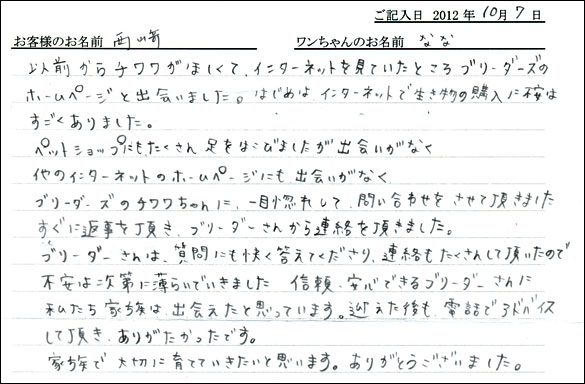 ご記入日 2012年10月7日
お客様のお名前 西山崎 ワンちゃんのお名前 なな
以前からチワワがほしくて、インターネットを見ていたところブリーダーズの
ホームページと出会いました。はじめは インターネットで生き物の購入に不安は
すごくありました。
ペットショップにもたくさん 足をはこびましたが出会いがなく
他のインターネットのホームページにも 出会いがなく、
ブリーダーズのチワワちゃんに、一目惚れして、問い合わせをさせて頂きました
すぐに返事を頂き、ブリーダーさんから連絡を頂きました。
ブリーダーさんは、質問にも快く答えてくださり、連絡もたくさんして頂いたので
不安は次第に薄らいでいきました 信頼、安心できるブリーダーさんに
私たち家族は、出会えたと思っています。迎えた後も、電話でアドバイス
して頂き、ありがたかったです。
家族で 大切に育てていきたいと思います。ありがとうございました。